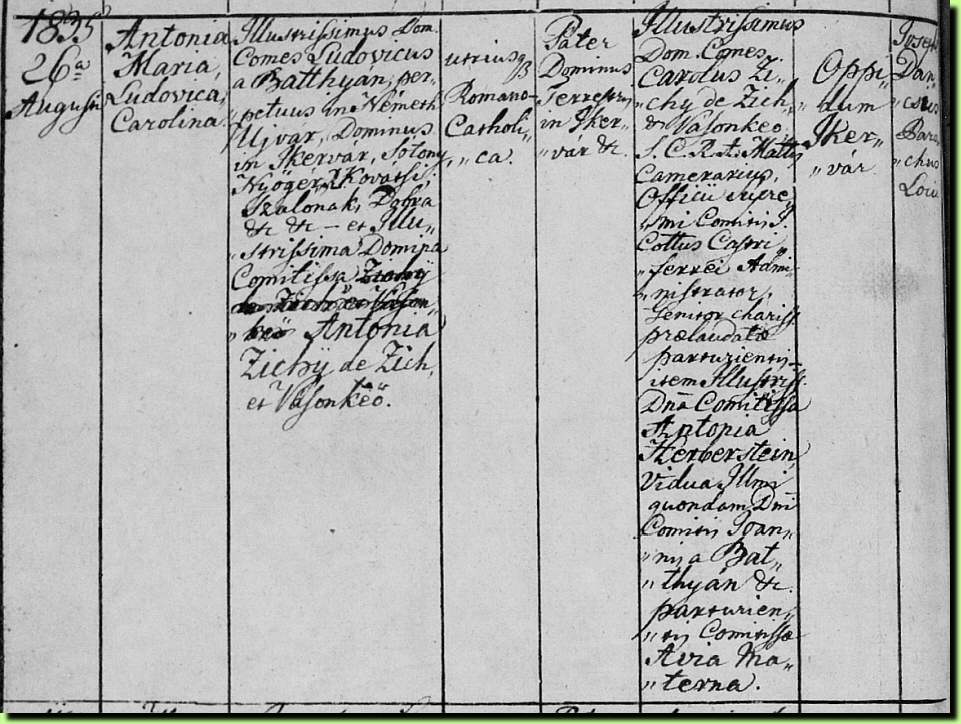 1835
26ª
Augusti
Antonia
Maria,
Ludovica,
Carolina.
Illustrissimus Dom.
Comes Ludovicus
a Batthyán, per„
„petuus in Németh
Ujvar, Dominus
in Ikervár, Sótony,
Nyögér, Kovatsi
Szalonak, Dobra
&c &c – et Illu„
„strissima Domina
Comitissa Zichÿ
de Zich et Vason„
„keö Antonia
Zichÿ de Zich,
et Vásonkeö.
utriusq
Romano-
Catholi„
„ca.
Pater
Dominus
Terrestris
in Iker„
„var &c.
Illustrissimus
Dom. Comes
Carolus Zi„
„chy de Zich
& Vásonkeo,
S. C. R. A. Mattis
Camerarius,
Officii supre„
„mi Comitis I.
Cottus Castri„
„ferrei Admi„
„nistrator,
Genitor chariss
prælaudatæ
parturientis–
item Illustriss.
Dna Comitissa
Antonia
Herberstein,
Vidua Illmi
quondam Dni
Comitis Ioan„
„nis a Bat„
„thyán &c.
parturien„
„tis Comitissæ
Avia Ma„
„terna.
Oppi„
„dum
Iker„
„vár
Joseph
Dan„
Paro„
„chus
Loci